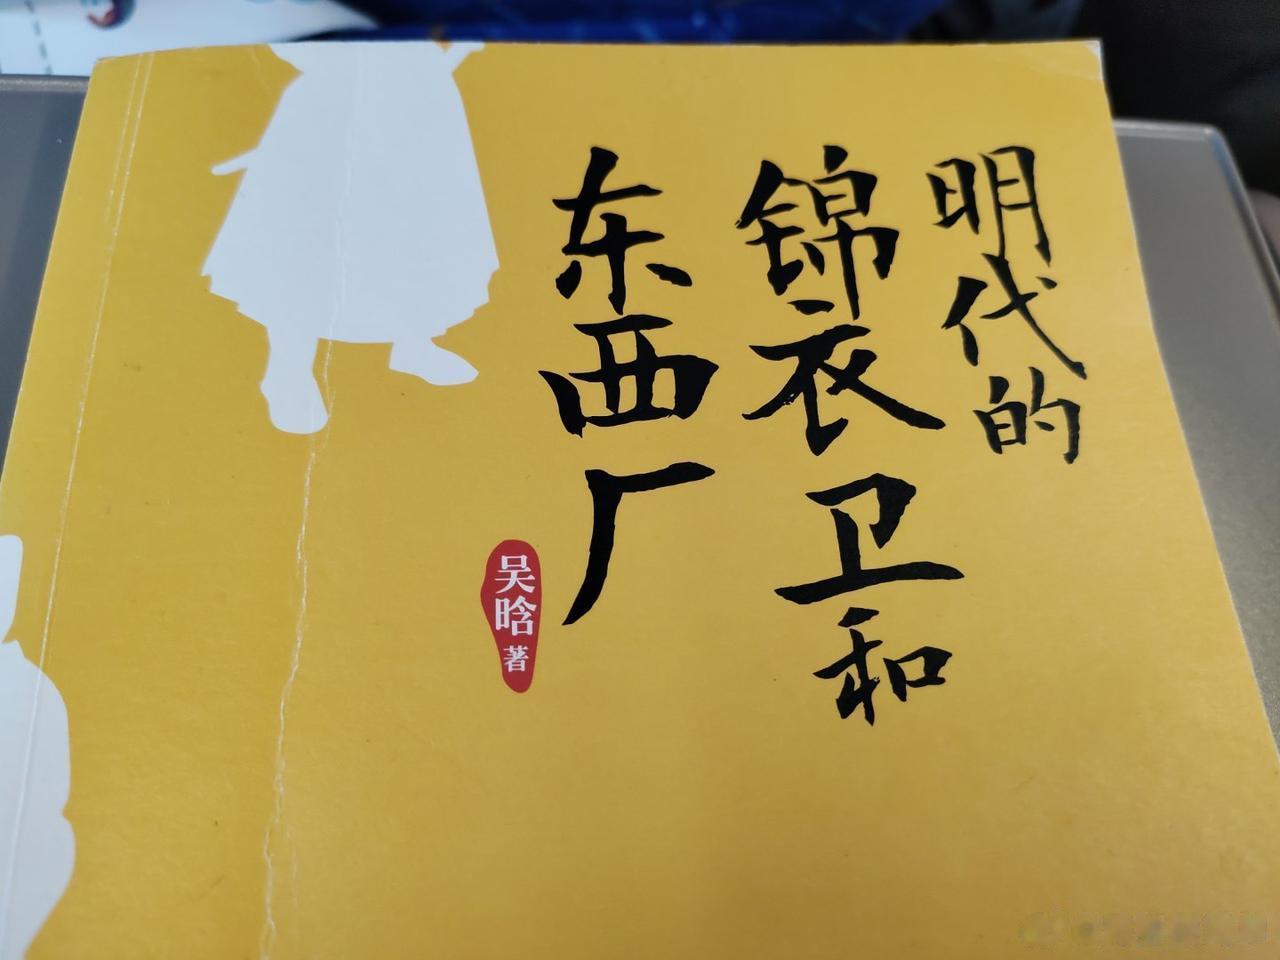 明代的
锦衣卫和
东西厂
吴晗 著